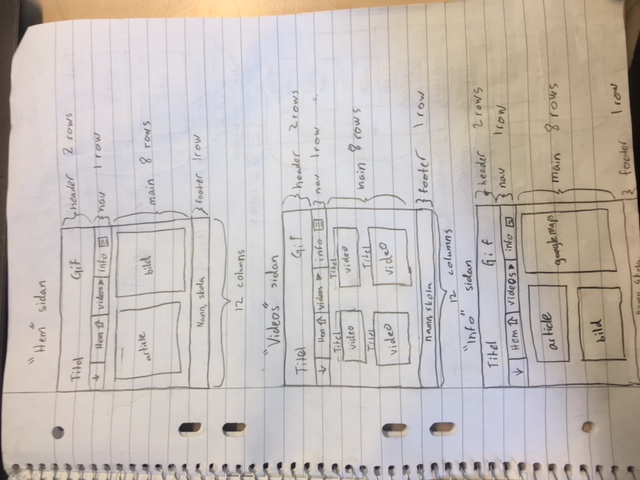 "Hem" sidan
Titel Gif header 2 rows
↓ Hem videos info nav 1 row
article bild main 8 rows
Namn, skola footer 1 row
12 columns
"Videos" sidan
Titel Gif header 2 rows
↓ Hem videos info nav 1 row
Titel Titel
video video
main 8 rows
Titel Titel
video video
namn, skola footer 1 row
12 columns
"Info" sidan
Titel Gif header 2 rows
↓ Hem videos info nav 1 row
article google maps main 8 rows
bild
namn skola footer 1 row